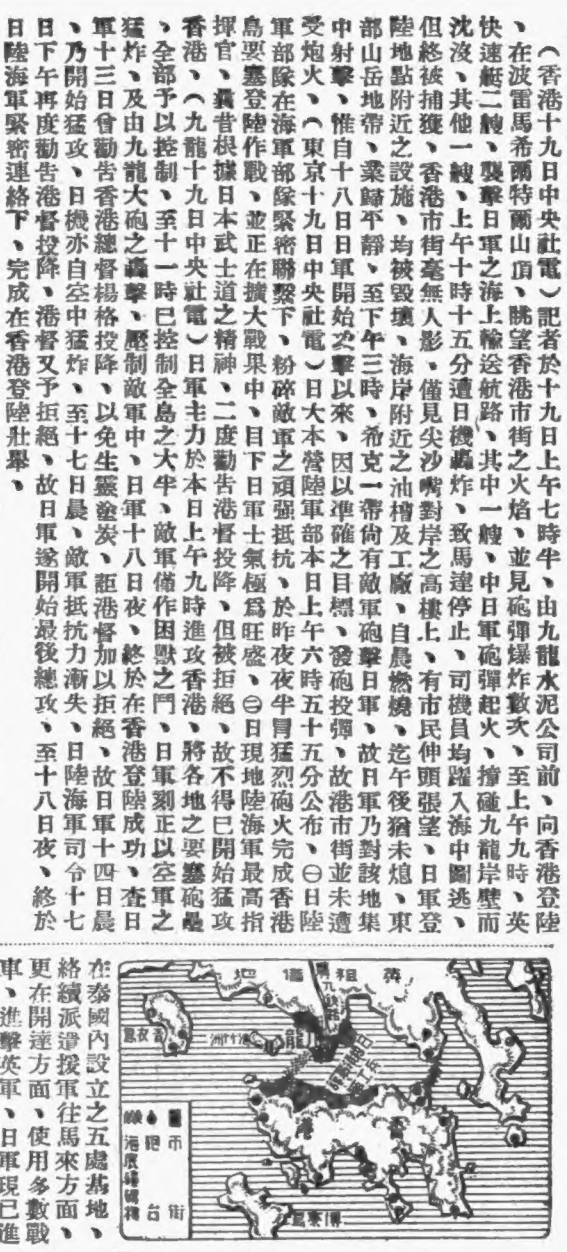 （香港十九日中央社電）記者於十九日上午七時半、由九龍水泥公司前、向香港登陸
、在波雷馬希爾特爾山頂、眺望香港市街之火焰、並見砲彈爆炸數次、至上午九時、英
快速艇二艘、襲擊日軍之海上輸送航路、其中一艘、中日軍砲彈起火、撞碰九龍岸壁而
沈沒、其他一艘、上午十時十五分遭日機轟炸、致馬達停止、司機員均躍入海中圖逃、
但終被捕獲、香港市街毫無人影、僅見尖沙嘴對岸之高樓上、有市民伸頭張望、日軍登
陸地點附近之設施、均被毀壞、海岸附近之油槽及工廠、自晨燃燒、迄午後猶未熄、東
部山岳地帶、業歸平靜、至下午三時、希克一帶尙有敵軍砲擊日軍、故日軍乃對該地集
中射擊、惟自十八日日軍開始攻擊以來、因以準確之目標、發砲投彈、故港市街並未遭
受炮火、（東京十九日中央社電）日大本營陸軍部本日上午六時五十五分公布、㊀日陸
軍部隊在海軍部隊緊密聯繫下、粉碎敵軍之頑强抵抗、於昨夜夜半冒猛烈砲火完成香港
島要塞登陸作戰、並正在擴大戰果中、目下日軍士氣極爲旺盛、㊁日現地陸海軍最高指
揮官、曩昔根據日本武士道之精神、二度勸告港督投降、但被拒絕、故不得已開始猛攻
香港、（九龍十九日中央社電）日軍主力於本日上午九時進攻香港、將各地之要塞砲壘
、全部予以控制、至十一時已控制全島之大半、敵軍僅作困獸之鬥、日軍刻正以空軍之
猛炸、及由九龍大砲之轟擊、壓制敵軍中、日軍十八日夜、終於在香港登陸成功、查日
軍十三日曾勸告香港總督楊格投降、以免生靈塗炭、詎港督加以拒絕、故日軍十四日晨
、乃開始猛攻、日機亦自空中猛炸、至十七日晨、敵軍抵抗力漸失、日陸海軍司令十七
日下午再度勸告港督投降、港督又予拒絕、故日軍遂開始最後總攻、至十八日夜、終於
日陸海軍緊密連絡下、完成在香港登陸壯舉、
英租借地
九龍
青衣島
香港
博寮島
市街
砲台
海底線
在泰國內設立之五處基地、
絡續派遣援軍往馬來方面、
更在開達方面、使用多數戰
車、進擊英軍、日軍現已進